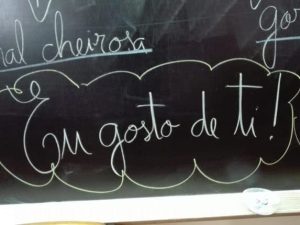 cheirosa
Eu gosto de ti!